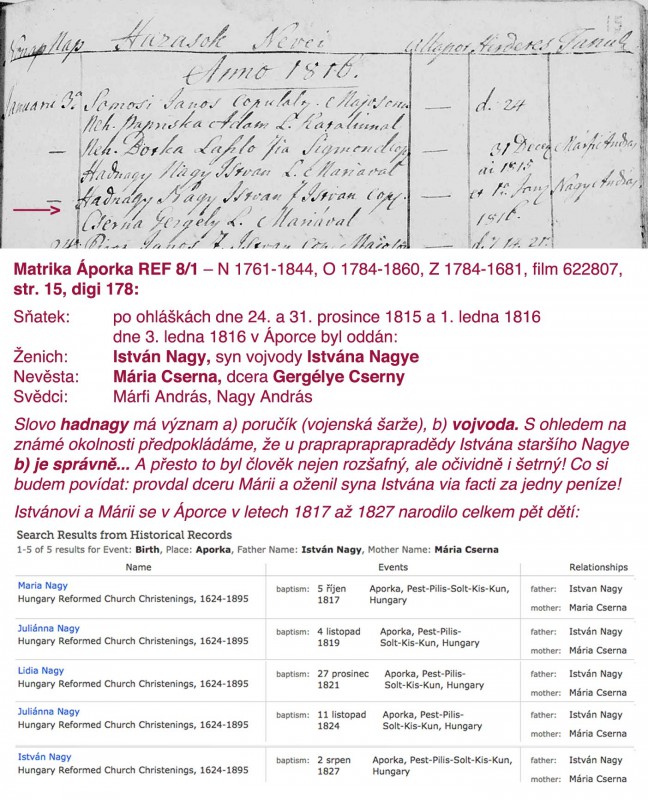 15
Házasok Nevei
Anno 1816.
Januari 3a Somosi Janos copulaly. Majosoná — d. 24
Neh. Paprıska Adam L. Katalinnal
— Neh. Dorka Laszlo fia Sigmond cop — 31 Decem Márfi András
Hadnagy Nagy Istvan L. Mariaval
— Hadnagy Nagy Istvan f Istvan copu. — et 1a Janu Nagy András
Cserna Gergely L. Mariaval 1816.
Matrika Áporka REF 8/1 – N 1761-1844, O 1784-1860, Z 1784-1681, film 622807,
str. 15, digi 178:
Sňatek: po ohláškách dne 24. a 31. prosince 1815 a 1. ledna 1816
dne 3. ledna 1816 v Áporce byl oddán:
Ženich: István Nagy, syn vojvody Istvána Nagye
Nevěsta: Mária Cserna, dcera Gergélye Cserny
Svědci: Márfi András, Nagy András
Slovo hadnagy má význam a) poručík (vojenská šarže), b) vojvoda. S ohledem na
známé okolnosti předpokládáme, že u praprapraprapradědy Istvána staršího Nagye
b) je správně... A přesto to byl člověk nejen rozšafný, ale očividně i šetrný! Co si
budem povídat: provdal dceru Márii a oženil syna Istvána via facti za jedny peníze!
Istvánovi a Márii se v Áporce v letech 1817 až 1827 narodilo celkem pět dětí:
Search Results from Historical Records
1-5 of 5 results for Event: Birth, Place: Aporka, Father Name: István Nagy, Mother Name: Mária Cserna
Name Events Relationships
Maria Nagy baptism: 5 říjen Aporka, Pest-Pilis-Solt-Kis-Kun, father: Istvan Nagy
Hungary Reformed Church Christenings, 1624-1895 1817 Hungary mother: Maria Cserna
Juliánna Nagy baptism: 4 listopad Aporka, Pest-Pilis- father: István Nagy
Hungary Reformed Church Christenings, 1624-1895 1819 Solt-Kis-Kun, Hungary mother: Mária Cserna
Lidia Nagy baptism: 27 prosinec Aporka, Pest-Pilis- father: István Nagy
Hungary Reformed Church Christenings, 1624-1895 1821 Solt-Kis-Kun, Hungary mother: Mária Cserna
Juliánna Nagy baptism: 11 listopad Aporka, Pest-Pilis- father: István Nagy
Hungary Reformed Church Christenings, 1624-1895 1824 Solt-Kis-Kun, Hungary mother: Mária Cserna
István Nagy baptism: 2 srpen Aporka, Pest-Pilis-Solt-Kis-Kun, father: István Nagy
Hungary Reformed Church Christenings, 1624-1895 1827 Hungary mother: Mária Cserna